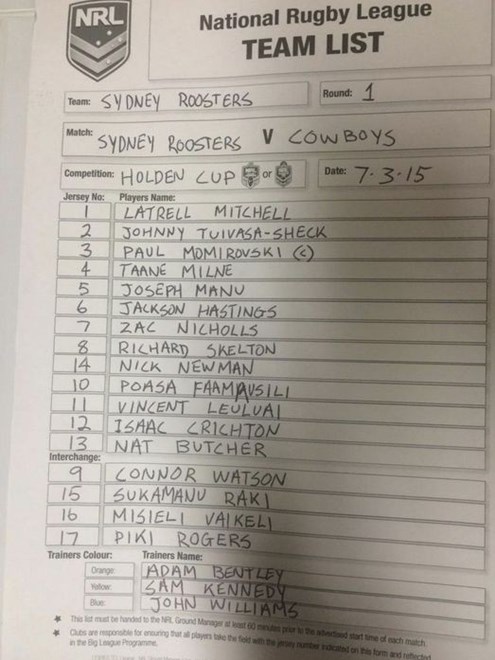 NRL
National Rugby League
TEAM LIST
Team: SYDNEY ROOSTERS
Round: 1
Match: SYDNEY ROOSTERS V COWBOYS
Competition: HOLDEN CUP or
Date: 7.3.15
Jersey No: Players Name:
1 LATRELL MITCHELL
2 JOHNNY TUIVASA-SHECK
3 PAUL MOMIROVSKI (c)
4 TAANE MILNE
5 JOSEPH MANU
6 JACKSON HASTINGS
7 ZAC NICHOLLS
8 RICHARD SKELTON
14 NICK NEWMAN
10 POASA FAAMAUSILI
11 VINCENT LEULUAI
12 ISAAC CRICHTON
13 NAT BUTCHER
Interchange:
9 CONNOR WATSON
15 SUKAMANU RAKI
16 MISIELI VAIKELI
17 PIKI ROGERS
Trainers Colour: Trainers Name:
Orange: ADAM BENTLEY
Yellow: SAM KENNEDY
Blue: JOHN WILLIAMS
* This list must be handed to the NRL Ground Manager at least 60 minutes prior to the advertised start time of each match.
* Clubs are responsible for ensuring that all players take the field with the jersey number indicated on this form and reflected
in the Big League Programme.